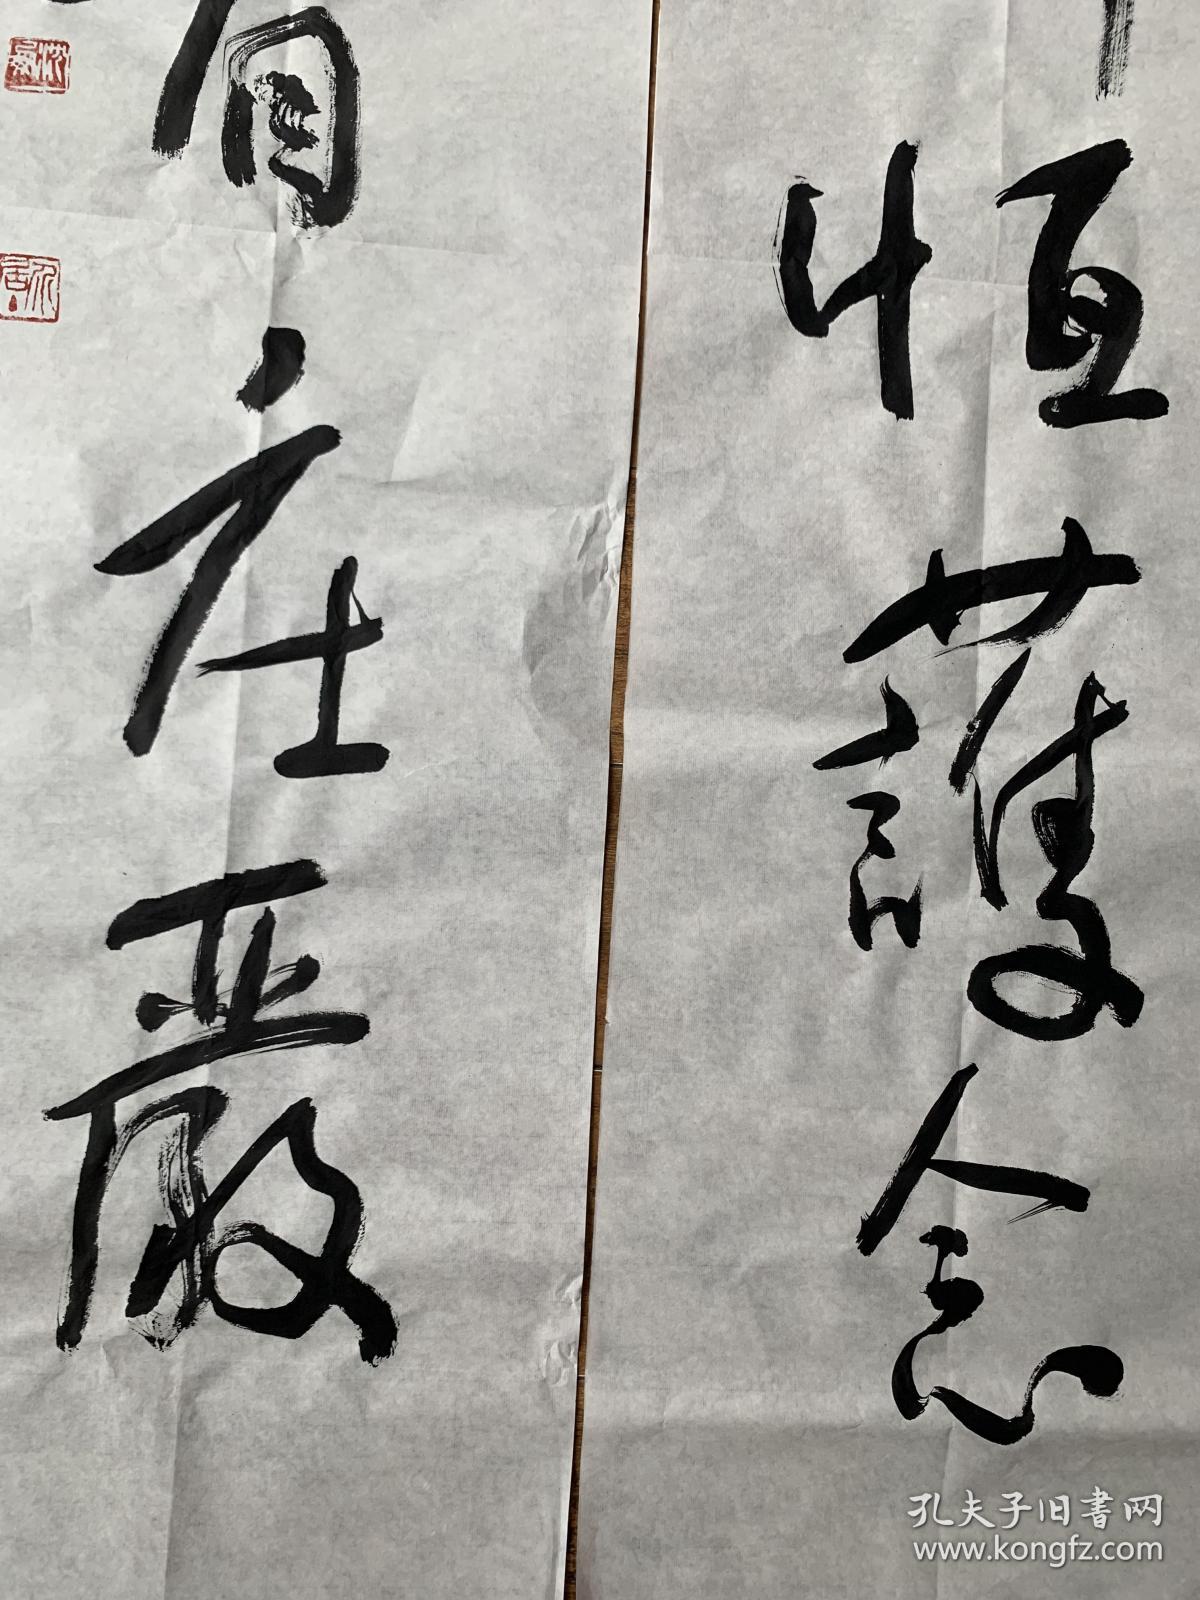 恒護念
庄嚴
孔夫子旧書网
www.kongfz.com